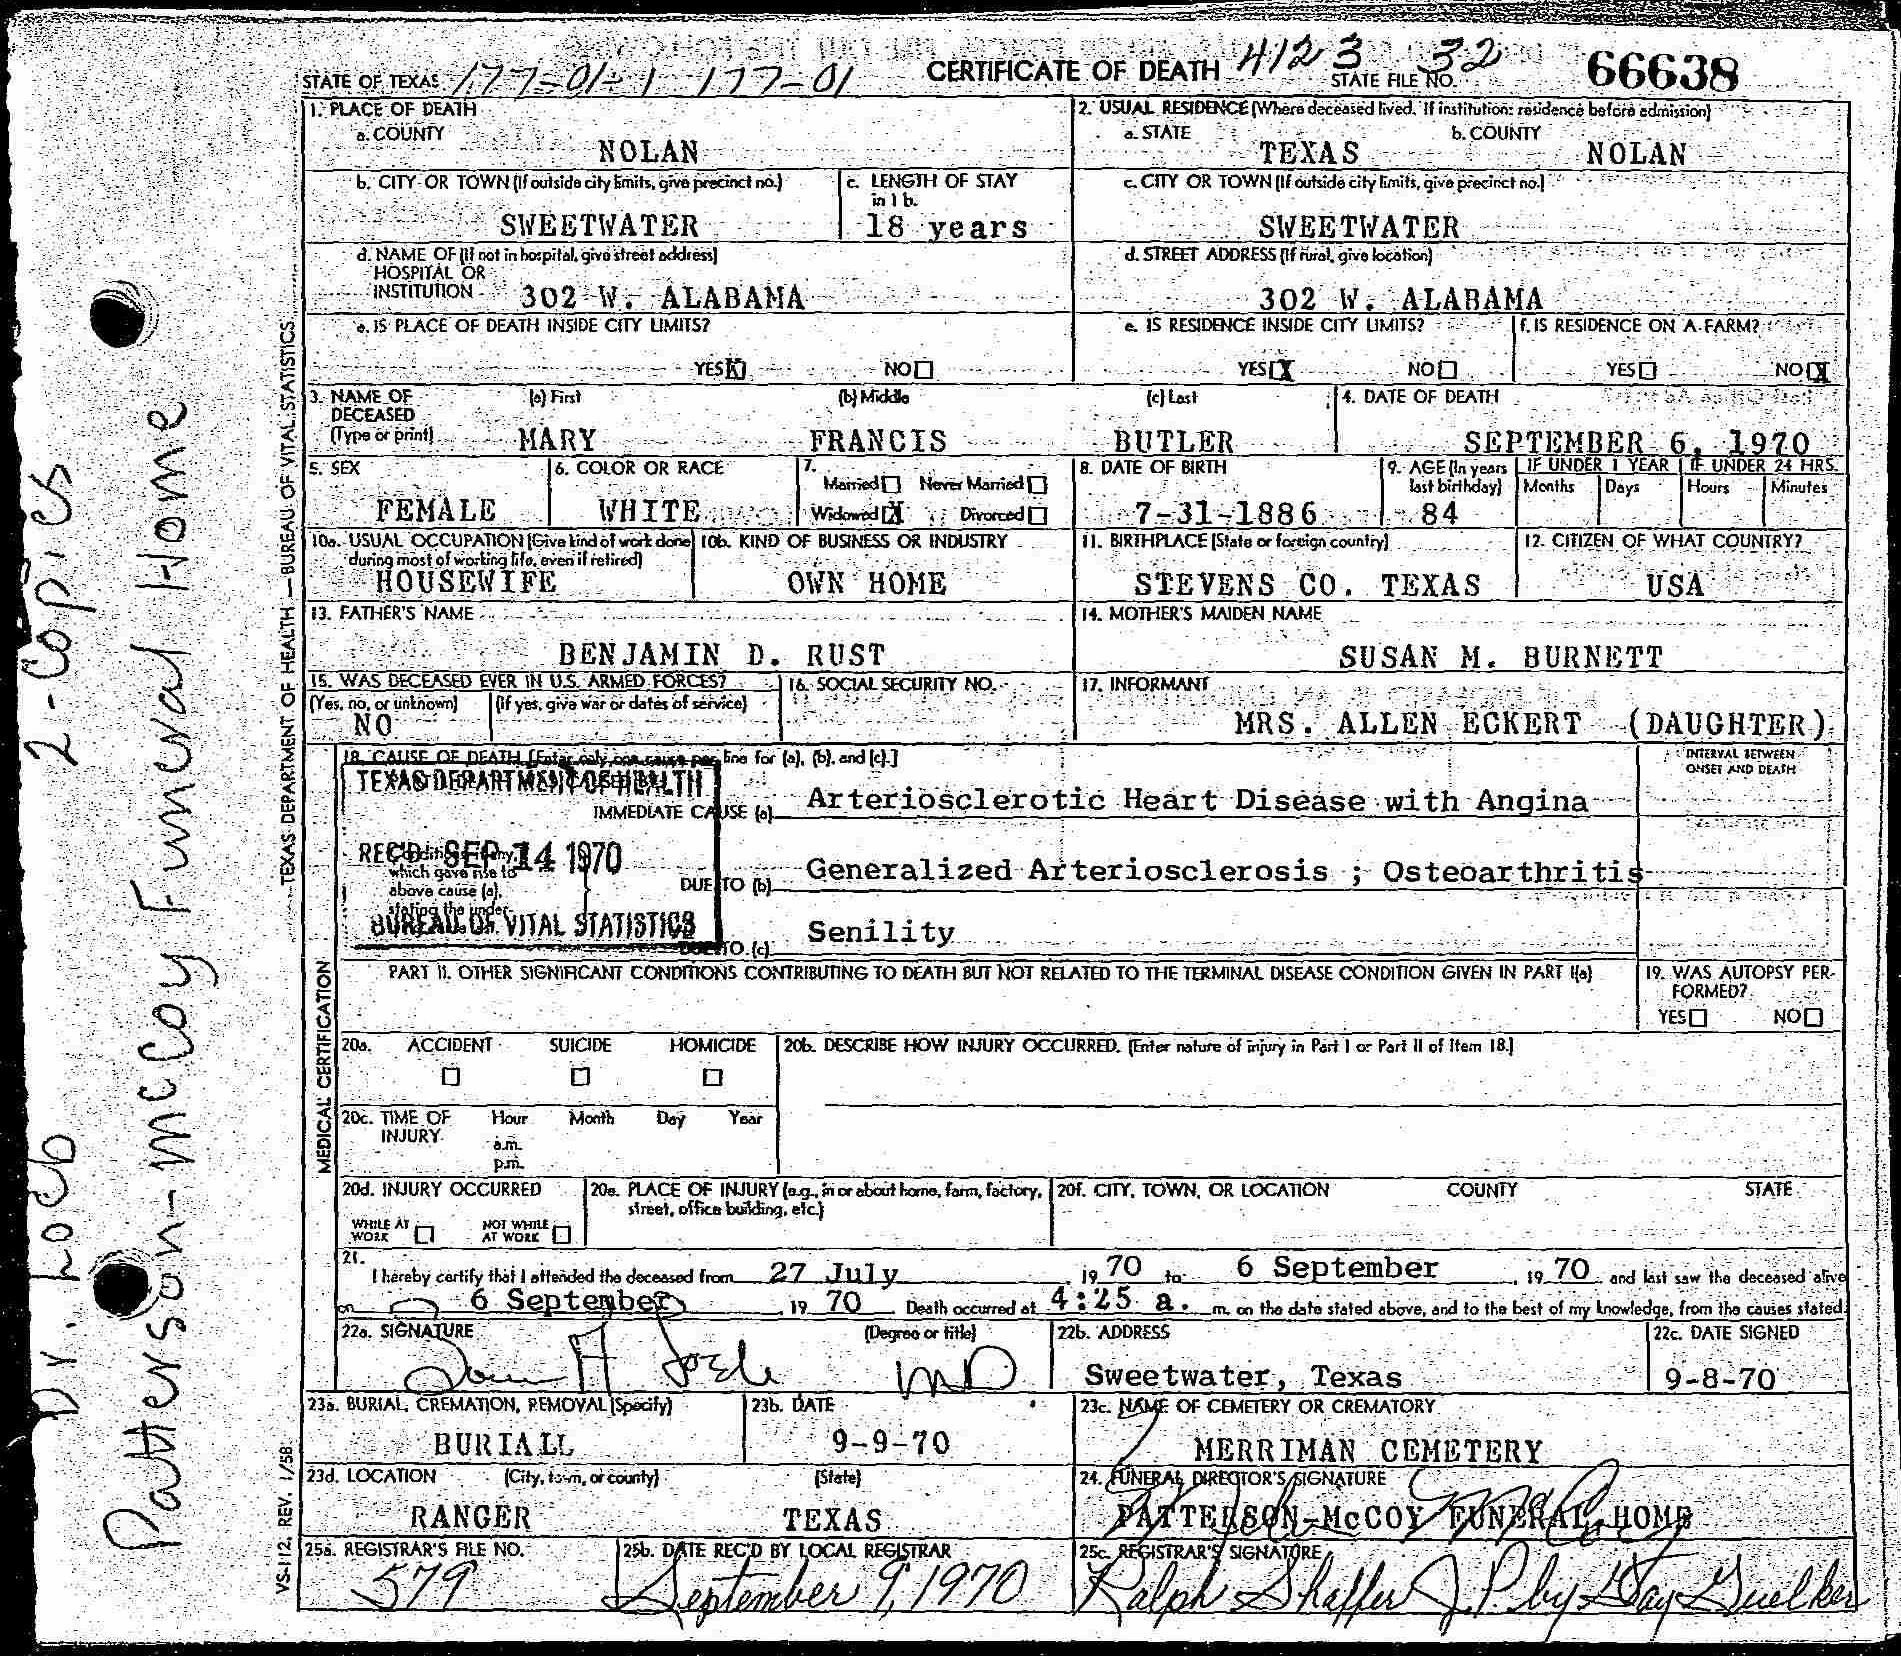 STATE OF TEXAS 177-01-1 177-01 CERTIFICATE OF DEATH 4123 32 STATE FILE NO. 66638
1. PLACE OF DEATH
a. COUNTY
NOLAN
2. USUAL RESIDENCE (Where deceased lived. If institution: residence before admission)
a. STATE b. COUNTY
TEXAS NOLAN
b. CITY OR TOWN (If outside city limits, give precinct no.)
SWEETWATER
c. LENGTH OF STAY
in 1 b.
18 years
c. CITY OR TOWN (If outside city limits, give precinct no.)
SWEETWATER
d. NAME OF (If not in hospital, give street address)
HOSPITAL OR
INSTITUTION 302 W. ALABAMA
d. STREET ADDRESS (If rural, give location)
302 W. ALABAMA
e. IS PLACE OF DEATH INSIDE CITY LIMITS?
YES X NO
e. IS RESIDENCE INSIDE CITY LIMITS?
YES X NO
f. IS RESIDENCE ON A FARM?
YES NO X
3. NAME OF
DECEASED
(Type or print)
(a) First (b) Middle (c) Last
MARY FRANCIS BUTLER
4. DATE OF DEATH
SEPTEMBER 6, 1970
5. SEX
FEMALE
6. COLOR OR RACE
WHITE
7.
Married Never Married
Widowed X Divorced
8. DATE OF BIRTH
7-31-1886
9. AGE (In years
last birthday)
84
IF UNDER 1 YEAR IF UNDER 24 HRS.
Months Days Hours Minutes
10a. USUAL OCCUPATION (Give kind of work done
during most of working life, even if retired)
HOUSEWIFE
10b. KIND OF BUSINESS OR INDUSTRY
OWN HOME
11. BIRTHPLACE (State or foreign country)
STEVENS CO. TEXAS
12. CITIZEN OF WHAT COUNTRY?
USA
13. FATHER'S NAME
BENJAMIN D. RUST
14. MOTHER'S MAIDEN NAME
SUSAN M. BURNETT
15. WAS DECEASED EVER IN U.S. ARMED FORCES?
(Yes, no, or unknown) (If yes, give war or dates of service)
NO
16. SOCIAL SECURITY NO.
17. INFORMANT
MRS. ALLEN ECKERT (DAUGHTER)
18. CAUSE OF DEATH [Enter only one cause per line for (a), (b), and (c).]
INTERVAL BETWEEN
ONSET AND DEATH
TEXAS DEPARTMENT OF HEALTH
REC'D SEP 14 1970
BUREAU OF VITAL STATISTICS
IMMEDIATE CAUSE (a) Arteriosclerotic Heart Disease with Angina
which gave rise to
above cause (a),
stating the under-
DUE TO (b) Generalized Arteriosclerosis ; Osteoarthritis
DUE TO (c) Senility
PART II. OTHER SIGNIFICANT CONDITIONS CONTRIBUTING TO DEATH BUT NOT RELATED TO THE TERMINAL DISEASE CONDITION GIVEN IN PART I(a)
19. WAS AUTOPSY PER-
FORMED?
YES NO
20a. ACCIDENT SUICIDE HOMICIDE
20b. DESCRIBE HOW INJURY OCCURRED. (Enter nature of injury in Part I or Part II of Item 18.)
20c. TIME OF
INJURY
Hour Month Day Year
a.m.
p.m.
20d. INJURY OCCURRED
WHILE AT
WORK
NOT WHILE
AT WORK
20e. PLACE OF INJURY (e.g., in or about home, farm, factory,
street, office building, etc.)
20f. CITY, TOWN, OR LOCATION COUNTY STATE
21.
I hereby certify that I attended the deceased from 27 July 19 70 to 6 September, 19 70 and last saw the deceased alive
on 6 September, 19 70 Death occurred at 4:25 a. m. on the date stated above, and to the best of my knowledge, from the causes stated.
22a. SIGNATURE (Degree or title)
MD
22b. ADDRESS
Sweetwater, Texas
22c. DATE SIGNED
9-8-70
23a. BURIAL, CREMATION, REMOVAL (Specify)
BURIALL
23b. DATE
9-9-70
23c. NAME OF CEMETERY OR CREMATORY
MERRIMAN CEMETERY
23d. LOCATION (City, town, or county) (State)
RANGER TEXAS
24. FUNERAL DIRECTOR'S SIGNATURE
PATTERSON-McCOY FUNERAL HOME
25a. REGISTRAR'S FILE NO.
579
25b. DATE REC'D BY LOCAL REGISTRAR
September 9, 1970
25c. REGISTRAR'S SIGNATURE
Ralph Shaffer J.P. by
TEXAS DEPARTMENT OF HEALTH — BUREAU OF VITAL STATISTICS
MEDICAL CERTIFICATION
VS-112. REV. 1/58
Dr. Loeb 2-Copies
Patterson-McCoy Funeral Home